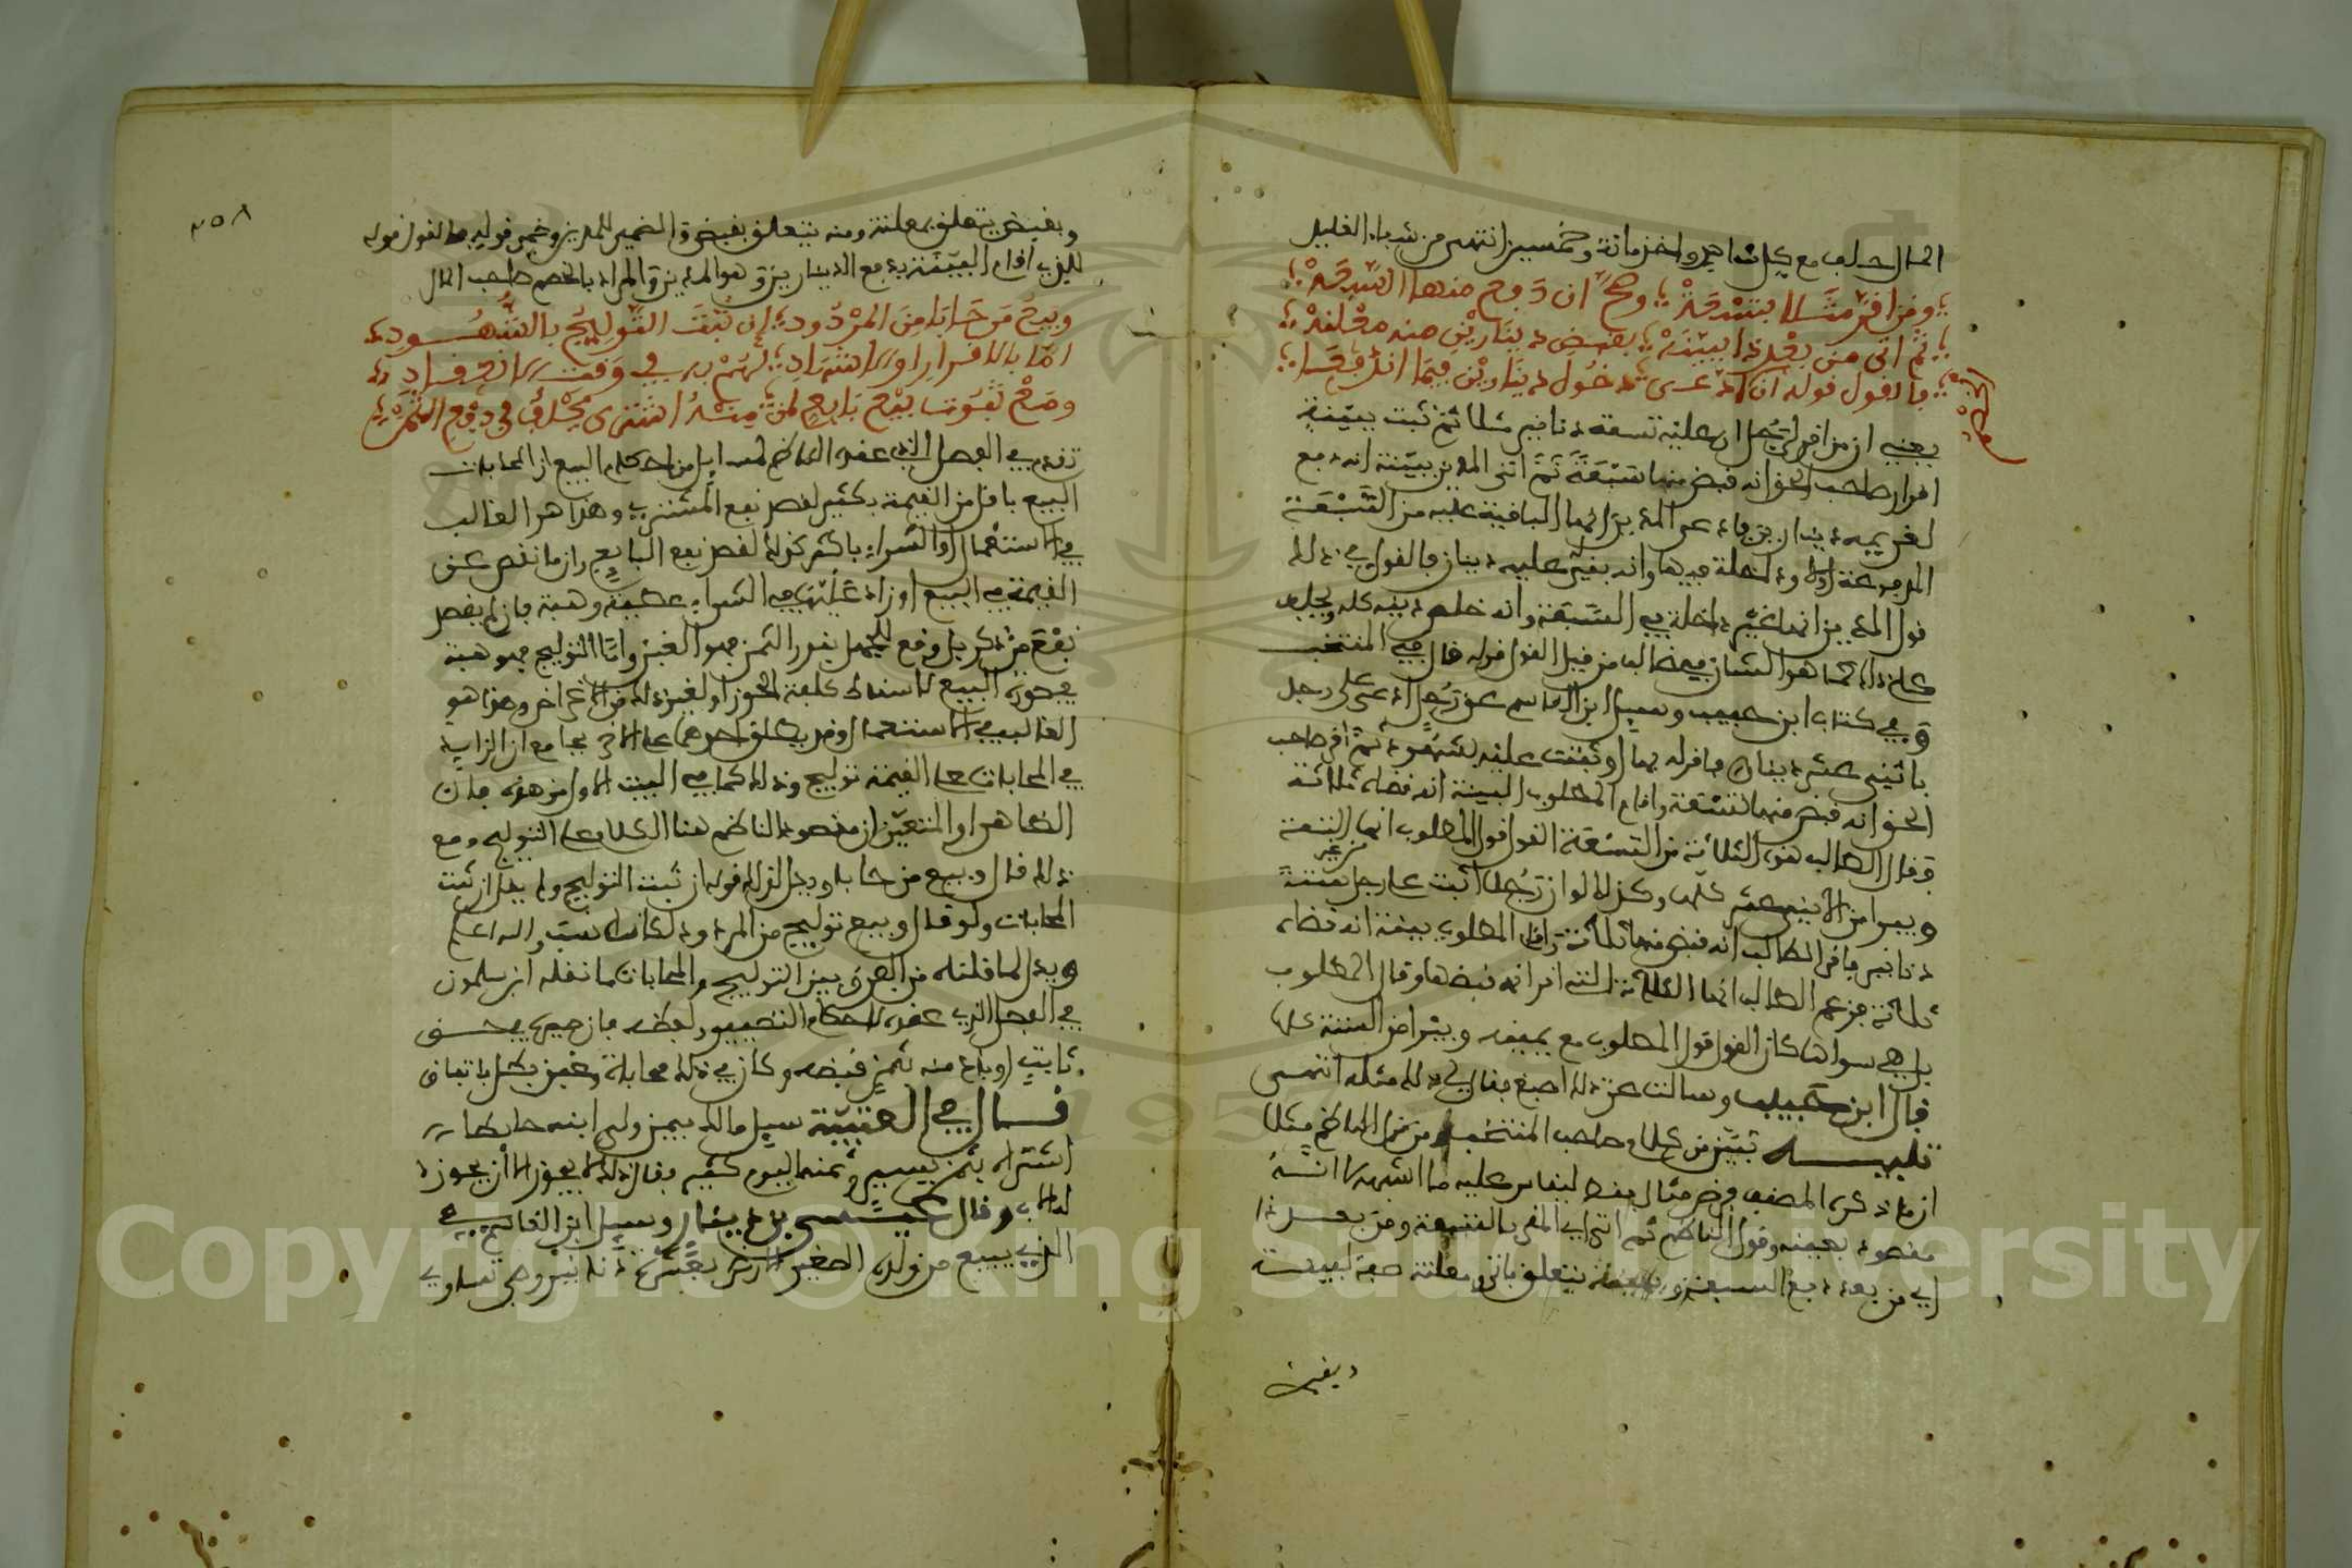 المال حلف مع كل شاهد واخذ مائة وخمسين انتهى من شهاب القليل
ومن اقر مثلا بتسعة وصح ان دفع منها السبعة
ثم اتى من بعد ذا ببينة بقبض دينارين منه معلنة
فالقول قوله ان ادعى دخول دينارين فيما اندفعا
يعني ان من اقر لرجل ان عليه تسعة دنانير مثلا ثم ثبت ببينة
اقرار صاحب الحق انه قبض منها سبعة ثم اتى المدين ببينة انه دفع
لغريمه دينارين فادعى المدين انهما الباقية عليه من التسعة
المدفوعة اولا وداخلة فيها وانه بقي عليه دينار فالقول في ذلك
قول المدين انها غير داخلة في السبعة وانه خلص دينه كله ويحلف
على ذلك كما هو الشان فيمن طالب من قبل القول قوله قال في المنتخب
وفي كتاب ابن حبيب وسيل ابن القاسم عن رجل ادعى على رجل
باثني عشر دينارا فاقر له بها او ثبتت عليه بشهود ثم اقر صاحب
الحق انه قبض منها تسعة واقام المطلوب البينة انه قضاه ثلاثة
فقال الطالب هذه الثلاثة من التسعة القول قول المطلوب انها من غير التسعة
ويبرا من الاثني عشر كلها وكذلك لو ان رجلا اثبت على رجل ستة
دنانير فاقر الطالب انه قبض منها ثلاثة واقام المطلوب بينة انه قضاه
ثلاثة فزعم الطالب انها الثلاثة التي اقر انه قبضها وقال المطلوب
بل هي سواها كان القول قول المطلوب مع يمينه ويبرا من الستة كلها
قال ابن حبيب وسالت عن ذلك اصبغ فقال لي في ذلك مثله انتهى
تنبيه تبين من كلام صاحب المنتخب ومن قول الناظم مثلا
ان ما ذكره المصنف فرض مثال فقط ليقاس عليه ما اشبهه لا انه
مقصود بعينه وقول الناظم ثم اتى اي المقر بالتسعة ومن بعد ذا
اي من بعد دفع السبعة وببينة يتعلق باتى ومعلنة صفة لبينة
وبقبض
٢٥٨
وبقبض يتعلق بمعلنة ومنه يتعلق بقبض والضمير للمدين وضمير قوله فالقول قوله
للذي اقام البينة بدفع الدينارين وهو المدين والمراد بالخصم صاحب المال
وبيع من حابا من المردود ان ثبت التوليج بالشهود
اما بالاقرار او الاشهاد لهم به في وقت الانعقاد
ومع ثبوت بيع بايع لمن منه اشترى يحلف في دفع الثمن
تقدم في الفصل الذي عقده الناظم لمسائل من احكام البيع ان المحابات
البيع باقل من القيمة بكثير لقصد نفع المشتري وهذا هو الغالب
في الاستعمال او الشراء باكثر كذلك لقصد نفع البايع وان ما نقص عن
القيمة في البيع او زاد عليها في الشراء عطية وهبة فان لم يقصد
نفع من ذكر بل وقع لجهل بقدر الثمن فهو الغبن واما التوليج فهو هبة
في صورة البيع لاسقاط كلفة الحوز او لغير ذلك من الاغراض وهذا هو
الغالب في الاستعمال وقد يطلق احدهما على الاخر بجامع ان الزايد
في المحابات على القيمة توليج وذلك كما في البيت الاول من هذه فان
الظاهر او المتعين ان مقصود الناظم هنا الكلام على التوليج ومع
ذلك قال وبيع من حابا ويدل لذلك قوله ان ثبت التوليج ولم يقل ان ثبت
المحابات ولو قال وبيع توليج من المردود لكان انسب والله اعلم
ويدل لما قلناه من الفرق بين التوليج والمحابات ما نقله ابن سلمون
في الفصل الذي عقده لاحكام التصيير ولفظه فان صير في حق
ثابت او باع منه بثمن قبضه وكان في ذلك محاباة وغبن بطل باتفاق
قال في العتبية سيل مالك فيمن ولى ابنه حايطا
اشتراه بثمن يسير وثمنه اليوم كثير فقال ذلك لا يجوز الا ان يحوزه
له الاب وقال عيسى بن دينار وسيل ابن القاسم عن
الذي يبيع من ولده الصغير الارض بعشرة دنانير وهي تساوي